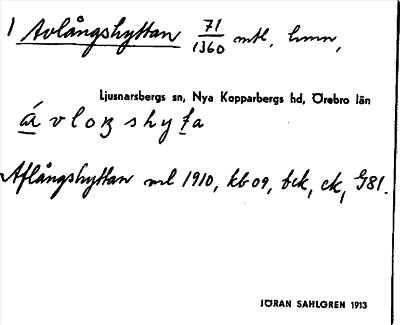 1 Avlångshyttan 71/1360 mtl, hmn,
Ljusnarsbergs sn, Nya Kopparbergs hd, Örebro län
Aflångshyttan ml 1910, kb 09, bck, ck, G81.
JÖRAN SAHLGREN 1913